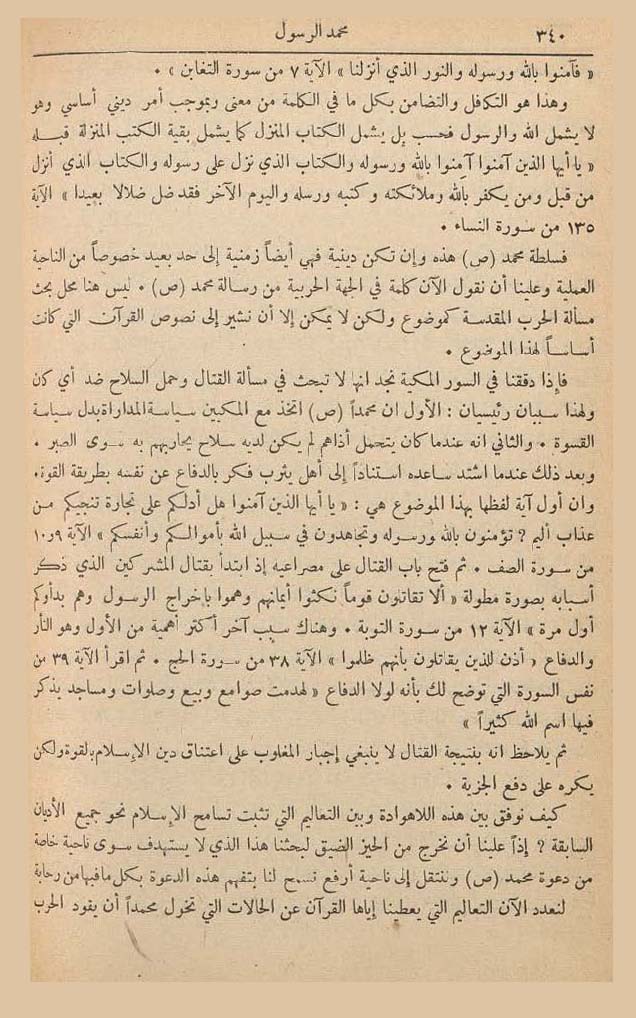 ٣٤٠
محمد الرسول
« فآمنوا بالله ورسوله والنور الذي أنزلنا » الآية ٧ من سورة التغابن » .
وهذا هو التكفل والتضامن بكل ما في الكلمة من معنى وبموجب أمر ديني أساسي وهو
لا يشمل الله والرسول فحسب بل يشمل الكتاب المنزل كما يشمل بقية الكتب المنزلة قبله
« يا أيها الذين آمنوا آمنوا بالله ورسوله والكتاب الذي نزل على رسوله والكتاب الذي أنزل
من قبل ومن يكفر بالله وملائكته وكتبه ورسله واليوم الآخر فقد ضل ضلالا بعيدا » الآية
١٣٥ من سورة النساء .
فسلطة محمد (ص) هذه وإن تكن دينية فهي أيضاً زمنية إلى حد بعيد خصوصاً من الناحية
العملية وعلينا أن نقول الآن كلمة في الجهة الحربية من رسالة محمد (ص) . ليس هنا محل بحث
مسألة الحرب المقدسة كموضوع ولكن لا يمكن إلا أن نشير إلى نصوص القرآن التي كانت
أساساً لهذا الموضوع .
فإذا دققنا في السور المكية نجد انها لا تبحث في مسألة القتال وحمل السلاح ضد أي كان
ولهذا سببان رئيسيان : الأول ان محمداً (ص) اتخذ مع المكيين سياسة المداراة بدل سياسة
القسوة . والثاني انه عندما كان يتحمل أذاهم لم يكن لديه سلاح يحاربهم به سوى الصبر .
وبعد ذلك عندما اشتد ساعده استناداً إلى أهل يثرب فكر بالدفاع عن نفسه بطريقة القوة.
وان أول آية لفظها بهذا الموضوع هي : « يا أيها الذين آمنوا هل أدلكم على تجارة تنجيكم من
عذاب أليم ? تؤمنون بالله ورسوله وتجاهدون في سبيل الله بأموالكم وأنفسكم » الآية ٩و١٠
من سورة الصف . ثم فتح باب القتال على مصراعيه إذ ابتدأ بقتال المشركين الذي ذكر
أسبابه بصورة مطولة « ألا تقاتلون قوماً نكثوا أيمانهم وهموا بإخراج الرسول وهم بدأوكم
أول مرة » الآية ١٢ من سورة التوبة . وهناك سبب آخر أكثر أهمية من الأول وهو الثأر
والدفاع « أذن للذين يقاتلون بأنهم ظلموا » الآية ٣٨ من سورة الحج . ثم اقرأ الآية ٣٩ من
نفس السورة التي توضح لك بأنه لولا الدفاع « لهدمت صوامع وبيع وصلوات ومساجد يذكر
فيها اسم الله كثيراً »
ثم يلاحظ انه بنتيجة القتال لا ينبغي إجبار المغلوب على اعتناق دين الإسلام بالقوة ولكن
يكره على دفع الجزية .
كيف نوفق بين هذه اللاهوادة وبين التعاليم التي تثبت تسامح الإسلام نحو جميع الأديان
السابقة ? إذاً علينا أن نخرج من الحيز الضيق لبحثنا هذا الذي لا يستهدف سوى ناحية خاصة
من دعوة محمد (ص) وننتقل إلى ناحية أرفع تسمح لنا بتفهم هذه الدعوة بكل ما فيها من رحابة
لنعدد الآن التعاليم التي يعطينا إياها القرآن عن الحالات التي تخول محمداً أن يقود الحرب